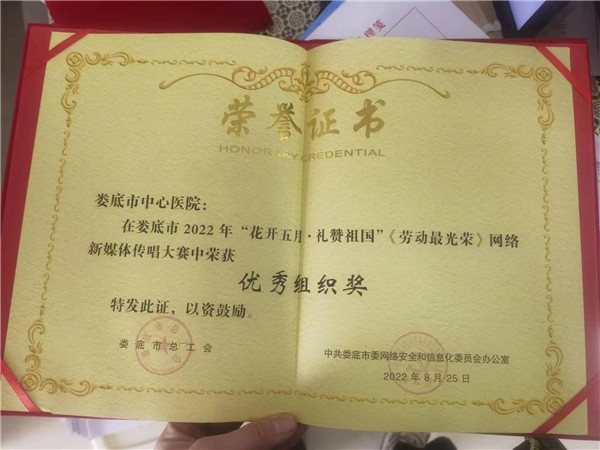 荣誉证书
HONORARY CREDENTIAL
娄底市中心医院：
在娄底市2022年“花开五月·礼赞祖国”《劳动最光荣》网络
新媒体传唱大赛中荣获
优秀组织奖
特发此证，以资鼓励。
娄底市总工会
中共娄底市委网络安全和信息化委员会办公室
2022年8月25日